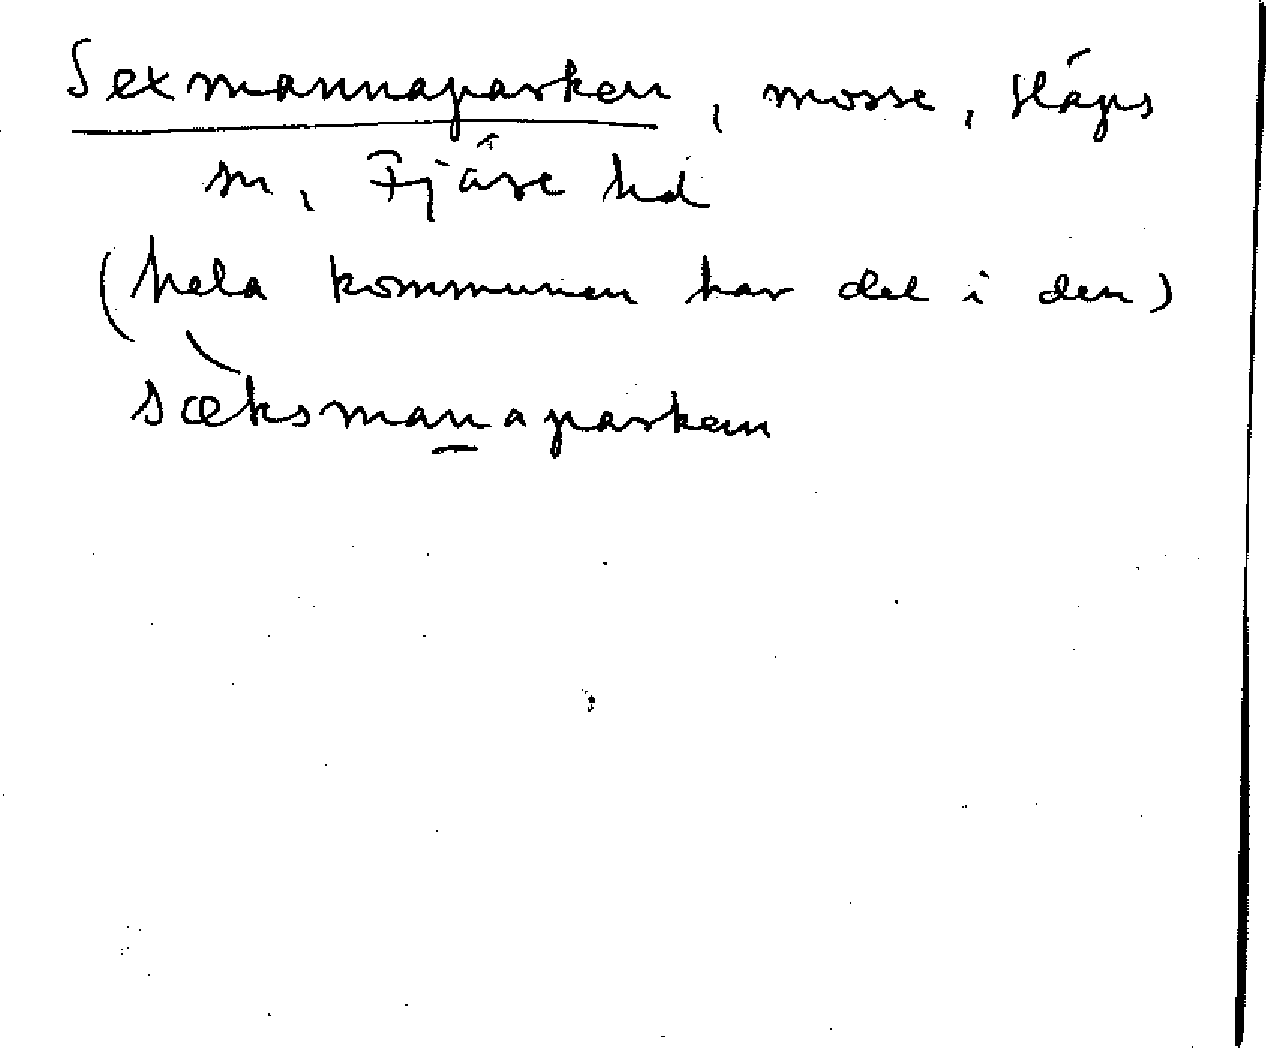 Sexmannaparken, mosse, Släps
sn, Fjäre hd
(hela kommunen har del i den)
sæksmanaparken